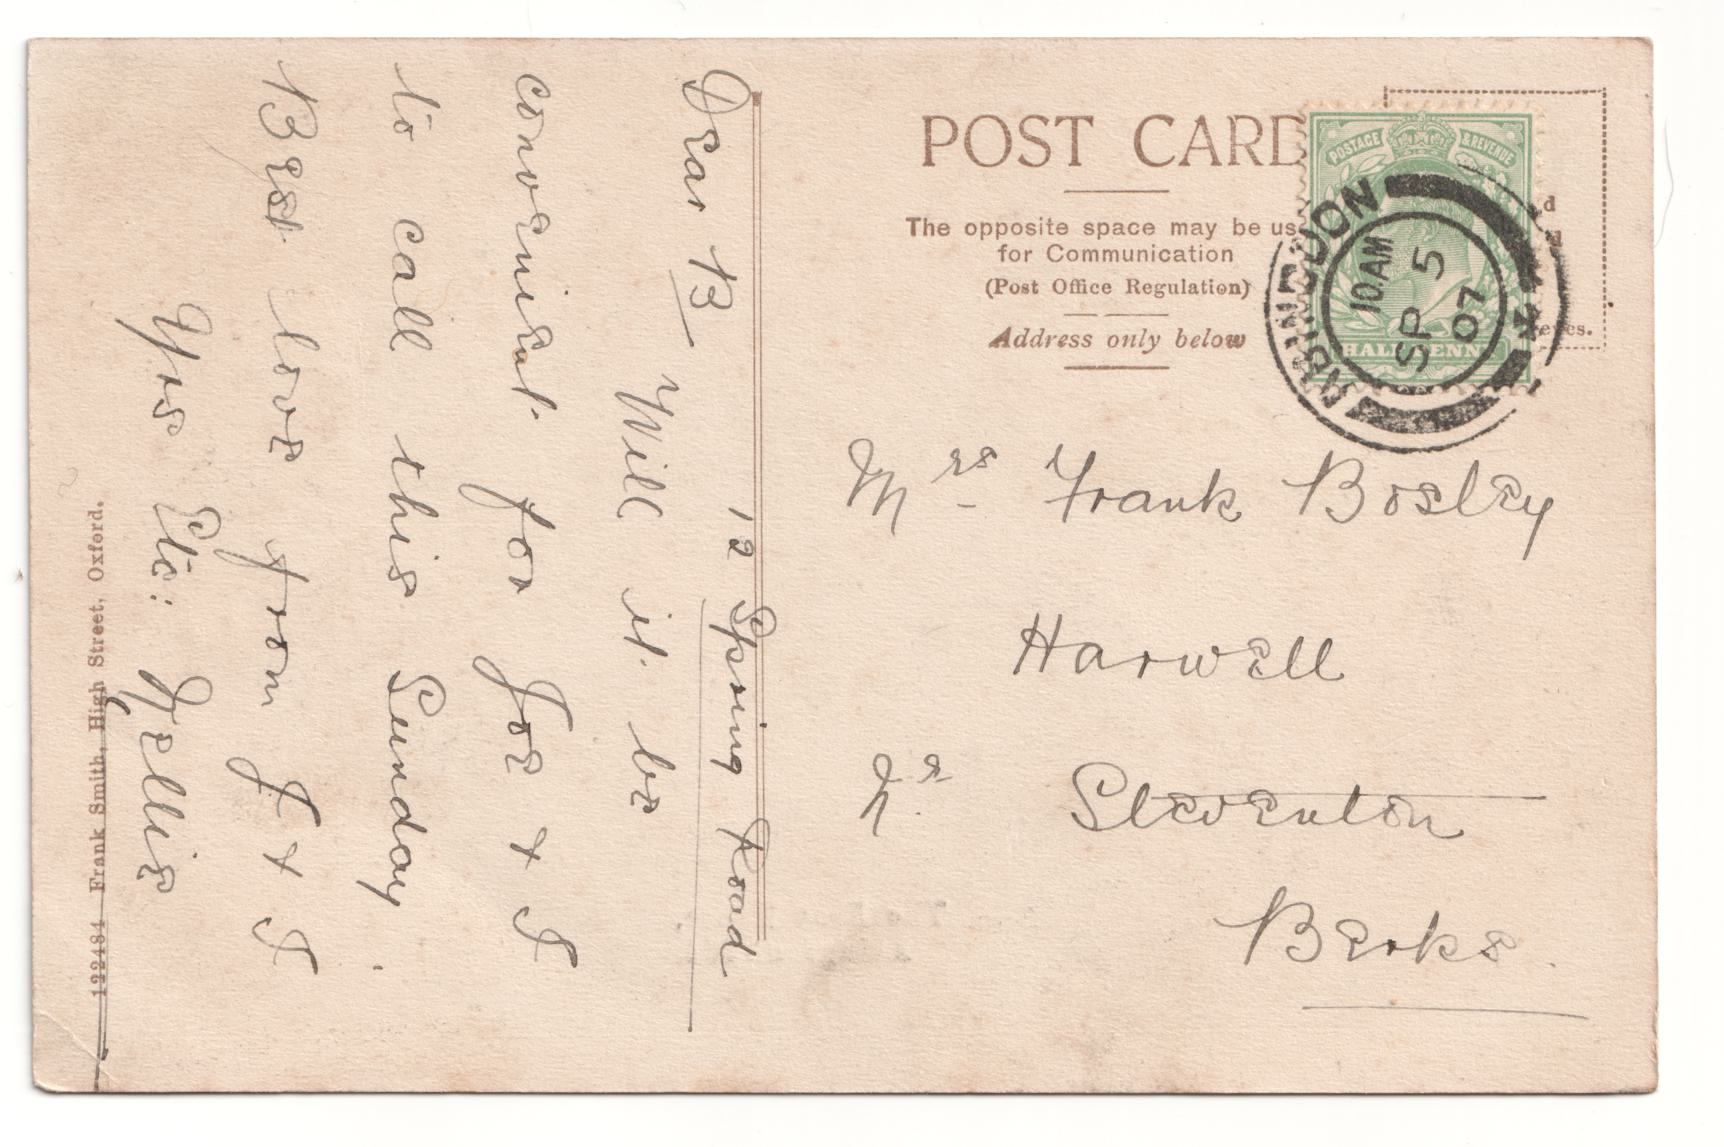 POST CARD
The opposite space may be us
for Communication
(Post Office Regulation)
Address only below
POSTAGE & REVENUE
HALFPENNY
ABINGDON
10 AM
SP 5
07
Mrs Frank Bosley
Harwell
Nr Steventon
Berks.
12 Spring Road
Dear B
Will it be
convenient for Joe & I
to call this Sunday.
Best love from J & I
Yrs Etc: Nellie
122484 Frank Smith, High Street, Oxford.